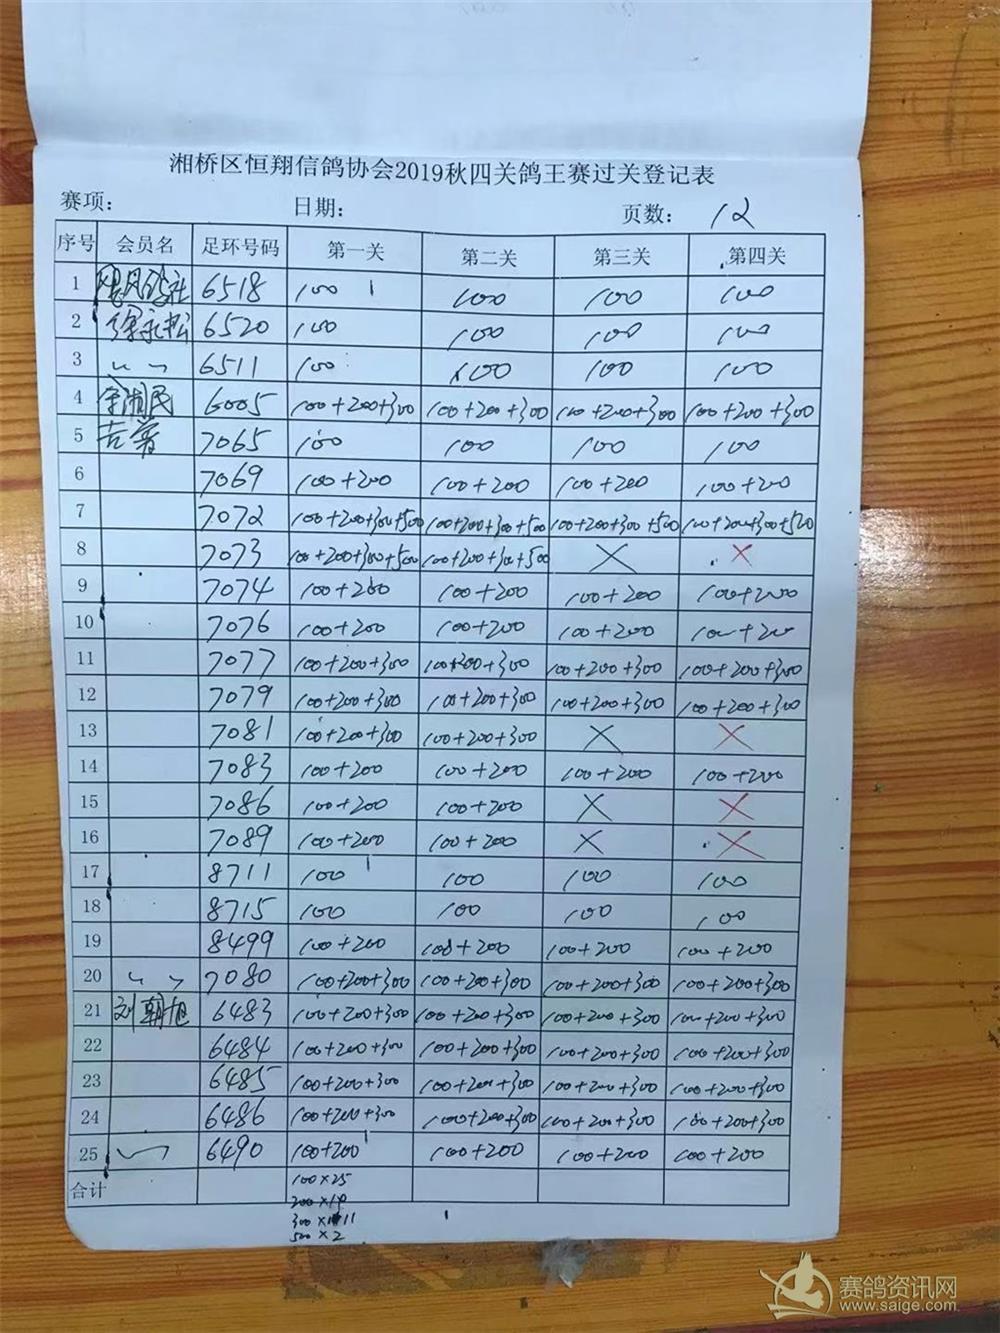 湘桥区恒翔信鸽协会2019秋四关鸽王赛过关登记表
赛项: 日期: 页数: 12
序号 会员名 足环号码 第一关 第二关 第三关 第四关
1 6518 100 100 100 100
2 徐永松 6520 100 100 100 100
3 〃 6511 100 100 100 100
4 6005 100+200+300 100+200+300 100+200+300 100+200+300
5 7065 100 100 100 100
6 7069 100+200 100+200 100+200 100+200
7 7072 100+200+300+500 100+200+300+500 100+200+300+500 100+200+300+500
8 7073 100+200+300+500 100+200+300+500 × ×
9 7074 100+200 100+200 100+200 100+200
10 7076 100+200 100+200 100+200 100+200
11 7077 100+200+300 100+200+300 100+200+300 100+200+300
12 7079 100+200+300 100+200+300 100+200+300 100+200+300
13 7081 100+200+300 100+200+300 × ×
14 7083 100+200 100+200 100+200 100+200
15 7086 100+200 100+200 × ×
16 7089 100+200 100+200 × ×
17 8711 100 100 100 100
18 8715 100 100 100 100
19 8499 100+200 100+200 100+200 100+200
20 〃 7080 100+200+300 100+200+300 100+200+300 100+200+300
21 刘朝旭 6483 100+200+300 100+200+300 100+200+300 100+200+300
22 6484 100+200+300 100+200+300 100+200+300 100+200+300
23 6485 100+200+300 100+200+300 100+200+300 100+200+300
24 6486 100+200+300 100+200+300 100+200+300 100+200+300
25 〃 6490 100+200 100+200 100+200 100+200
合计 100×25
200×19
300×11
500×2
赛鸽资讯网
www.saige.com